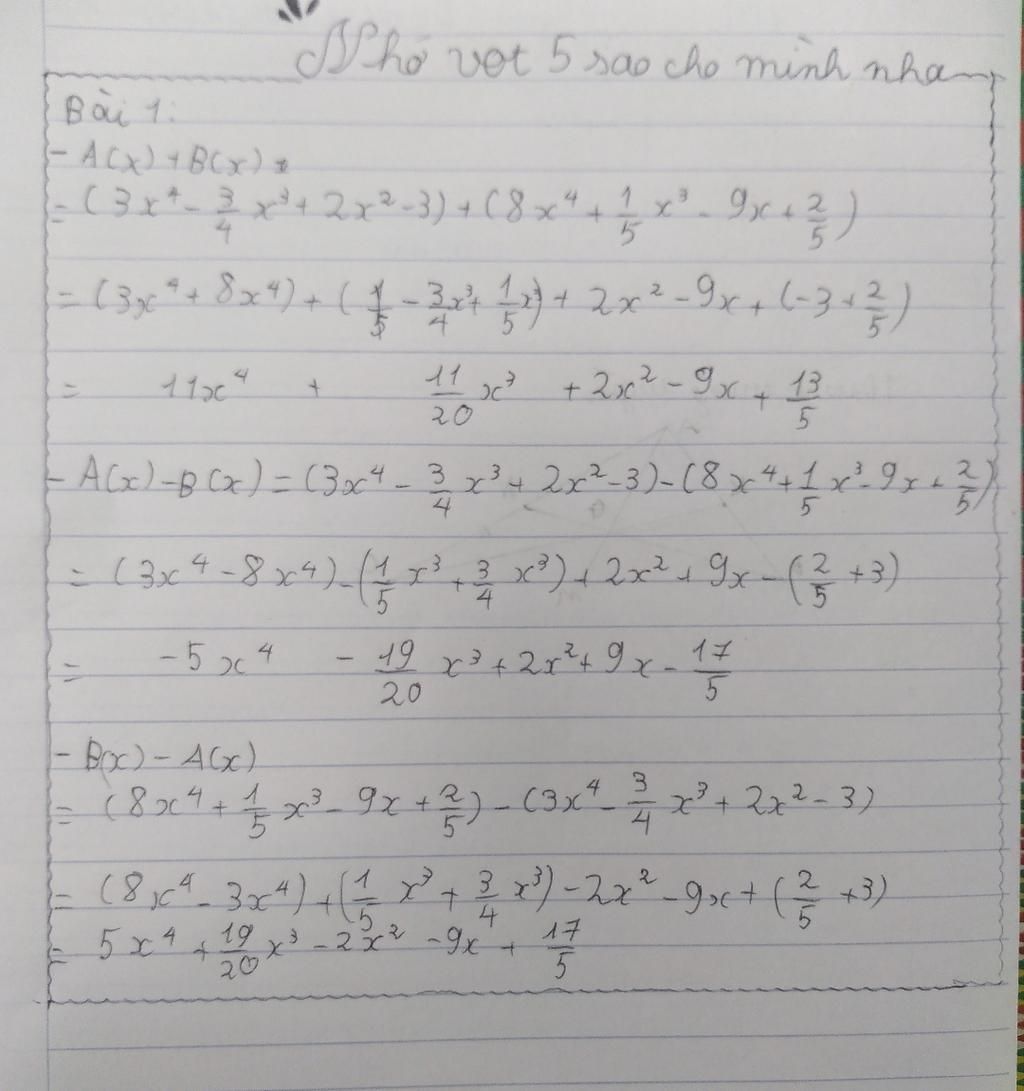 Nhớ vot 5 sao cho mình nha
Bài 1:
- A(x) + B(x) =
= (3x⁴ - 3/4 x³ + 2x² - 3) + (8x⁴ + 1/5 x³ - 9x + 2/5)
= (3x⁴ + 8x⁴) + ( - 3/4 x³ + 1/5 x³) + 2x² - 9x + (-3 + 2/5)
= 11x⁴ + 11/20 x³ + 2x² - 9x + 13/5
- A(x) - B(x) = (3x⁴ - 3/4 x³ + 2x² - 3) - (8x⁴ + 1/5 x³ - 9x + 2/5)
= (3x⁴ - 8x⁴) - (1/5 x³ + 3/4 x³) + 2x² + 9x - (2/5 + 3)
= -5x⁴ - 19/20 x³ + 2x² + 9x - 17/5
- B(x) - A(x)
= (8x⁴ + 1/5 x³ - 9x + 2/5) - (3x⁴ - 3/4 x³ + 2x² - 3)
= (8x⁴ - 3x⁴) + (1/5 x³ + 3/4 x³) - 2x² - 9x + (2/5 + 3)
= 5x⁴ + 19/20 x³ - 2x² - 9x + 17/5